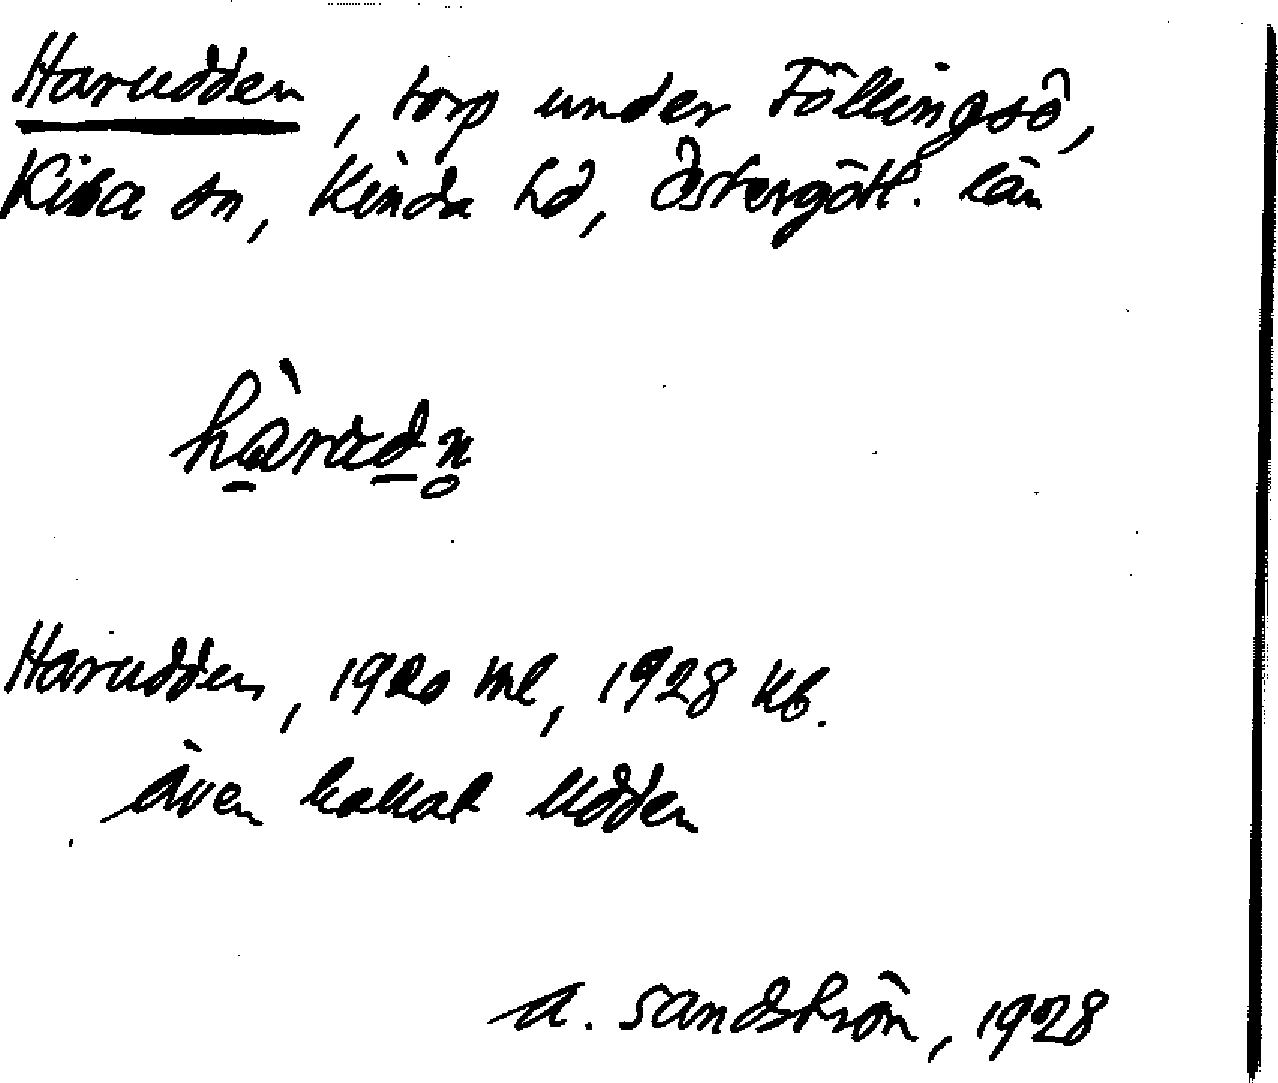 Harudden, torp under Föllingsö,
Kisa sn, Kinda hd, Östergötl. län
hàrudn
Harudden, 1920 ml, 1928 kb.
även kallat Udden
A. Sandström, 1928